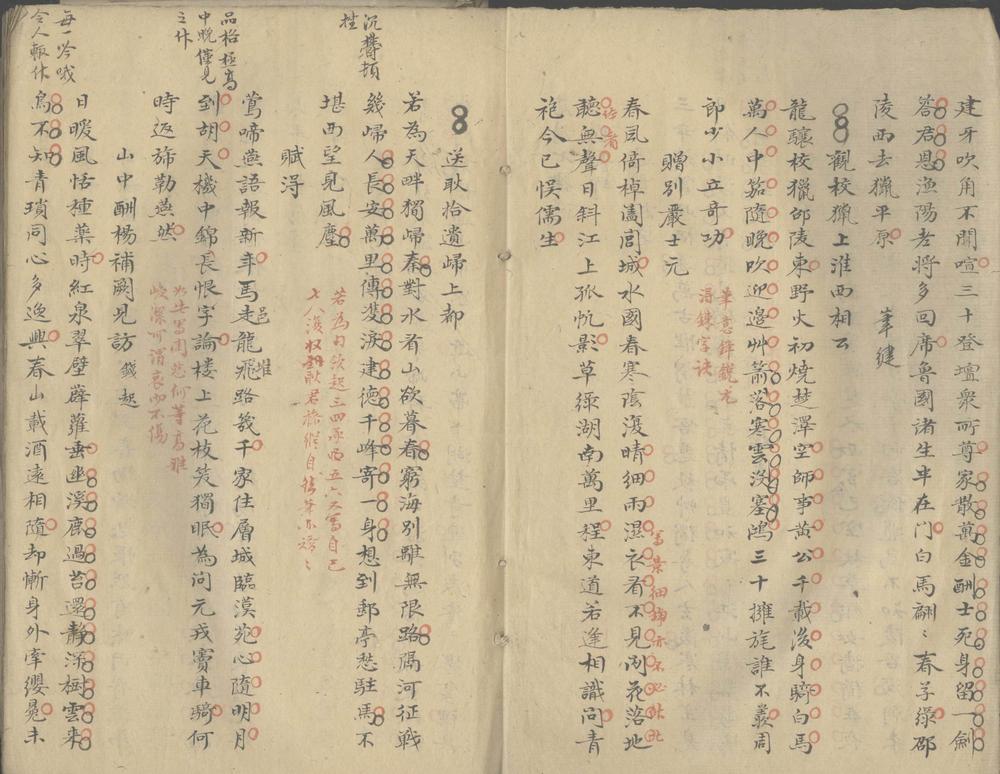 建牙吹角不聞喧三十登壇衆所尊家散萬金酬士死身留一劍
答君恩漁陽老將多回席魯國諸生半在门白馬翩〻春子綠邵
陵西去獵平原
筆健
觀校獵上淮西相公
龍驤校獵邵陵東野火初燒楚澤空師事黃公千載後身騎白馬
萬人中笳隨晚吹迎邊艸箭落寒雲没塞鴻三十擁旄誰不羨周
郎少小立奇功
筆意鋒銳尤
得鍊字訣
贈别嚴士元
春風倚棹闔閭城水國春寒陰復晴細雨濕衣看不見閑花落地
聽無聲日斜江上孤帆影草綠湖南萬里程東道若逢相識问青
袍今已悮儒生
寫景細婦亦不必耿耿
送耿拾遺歸上都
若為天畔獨歸秦對水看山欲暮春窮海别離無限路隔河征戰
幾歸人長安萬里傳雙淚建德千峰寄一身想到郵亭愁駐馬不
堪西望見風塵
沉鬱頓
挫
若為句欲起三四承西五六又寫自己
七八復收到耿君
賦得
鶯啼燕語報新年馬邑龍堆路幾千家住層城臨漠苑心隨明月
到胡天機中錦字論長恨樓上花枝笑獨眠為问元戎竇車騎何
時返斾勒燕然
品格極高
中晚僅見
之作
如此寫闺怨何等高雅
峻深所謂哀而不傷
山中酬楊補闕見訪
錢起
日暖風恬種藥時紅泉翠壁薜蘿垂幽溪鹿過苔還靜深樹雲來
鳥不知青瑣同心多逸興春山載酒遠相隨却慚身外牽纓冕未
每一吟哦
令人輒休